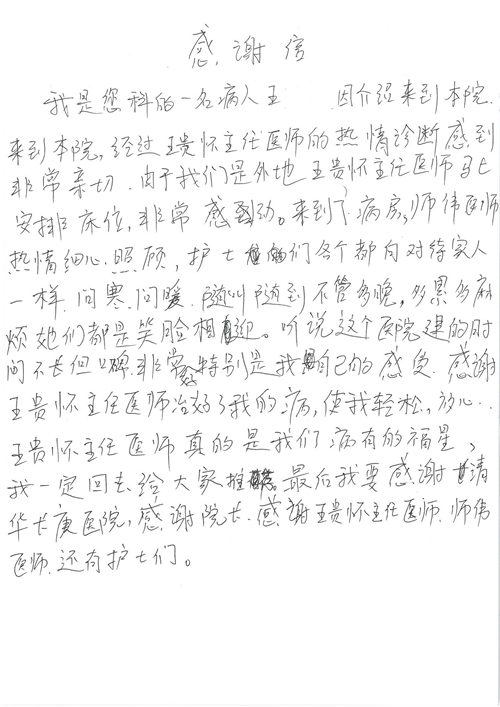 感谢信
我是您科的一名病人王 因介绍来到本院.
来到本院,经过王贵怀主任医师的热情诊断感到
非常亲切.由于我们是外地王贵怀主任医师马上
安排床位,非常感动。来到了病房,师伟医师
热情细心照顾,护士们各个都向对待家人
一样.问寒问暖.随叫随到不管多晚,多累多麻
烦她们都是笑脸相迎。听说这个医院建的时
间不长但口碑非常好特别是我自己的感受.感谢
王贵怀主任医师治好了我的病,使我轻松,放心...
王贵怀主任医师真的是我们病有的福星、
我一定回去给大家推 最后我要感谢清
华长庚医院,感谢院长.感谢王贵怀主任医师.师伟
医师.还有护士们。